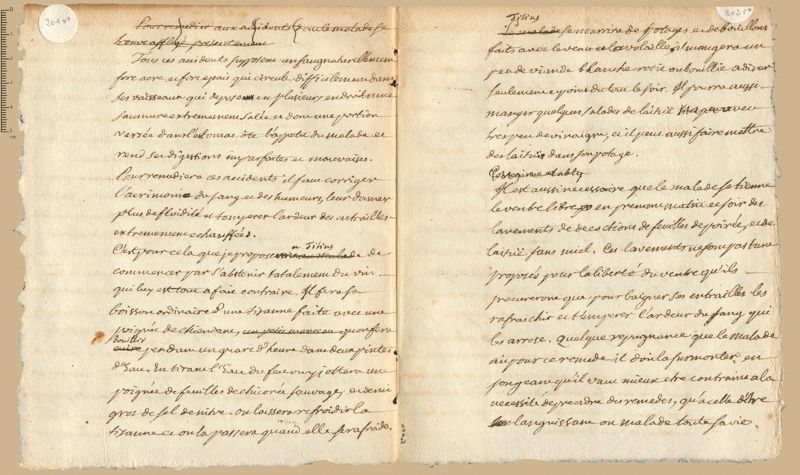 Pour remedier aux accidents ou le malade se
trouve affligé presentement
Tous ces accidents supposent un sang naturellement
fort acre et fort epais qui circule difficilement dans
ses vaisseaux qui depose en plusieurs endroits une
saumure extremement salée et dont une portion
versée dans l'estomac ôte l'appetit du malade et
rend ses digestions imparfaites et mauvaises.
Pour remedier a ces accidents il faut corriger
l'acrimonie du sang et des humeurs, leur donner
plus de fluidité et temperer l'ardeur des entrailles
extremement echauffées.
a Titius
C'est pour cela que je propose de
commencer par s'abstenir totalement du vin
qui luy est tout a fait contraire. Il fera sa
boisson ordinaire d'une tizanne faite avec une
poignée de chiendent, qu'on fera
bouillir
pendant un quart d'heure dans deux pintes
d'eau. En tirant l'eau du feu on y jettera une
poignée de feuilles de chicorée sauvage, et demi
gros de sel de nitre. On laissera refroidir la
tizanne et on la passera quand elle sera froide.
Titius
Le malade se nourrira de potages et de bouillons
faits avec le veau et la volaille, il mangera un
peu de viande blanche rotie ou bouillie a diner
seulement et point du tout le soir. Il pourra aussi
manger quelques salades de laitue avec
tres peu de vinaigre, et il peut aussi faire mettre
des laitues dans son potage.
Il est aussi necessaire que le malade se tienne
le ventre libre en prenant matin et soir des
lavements de decoctions de feuilles de poirée, et de
laitue sans miel. Ces lavements ne sont pas tant
proposés pour la liberté du ventre qu'ils
procureront que pour baigner ses entrailles les
rafraichir et temperer l'ardeur du sang qui
les arrose. Quelque repugnance que le malade
ait pour ce remede il doit la surmonter, en
songeant qu'il vaut mieux etre contraint a la
necessité de prendre des remedes, qu'a celle d'être
languissant ou malade toute sa vie.